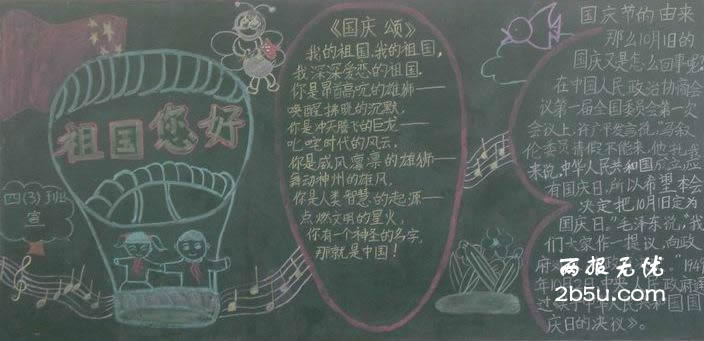 祖国您好
四(3)班
宣
《国庆 颂》
我的祖国,我的祖国,
我深深爱恋的祖国.
你是昂首高吭的雄狮——
唤醒拂晓的沉默,
你是冲天腾飞的巨龙——
叱咤时代的风云,
你是威风凛凛的雄狮——
舞动神州的雄风,
你是人类智慧的起源——
点燃文明的星火,
你有一个神圣的名字,
那就是中国!
国庆节的由来
那么10月1日的
国庆又是怎么回事呢?
在中国人民政治协商会
议第一届全国委员会第一次
会议上,许广平发言说,"马叙
伦委员请假不能来,他托我
来说,中华人民共和国成立应
有国庆日,所以希望本会
决定把10月1日定为
国庆日。"毛泽东说,"我
们大家作一提议,向政
府
1949
年10月2日,中央人民政府通
过
中华人民共和国国
庆日的决议》。
两报无优
2b5u.com